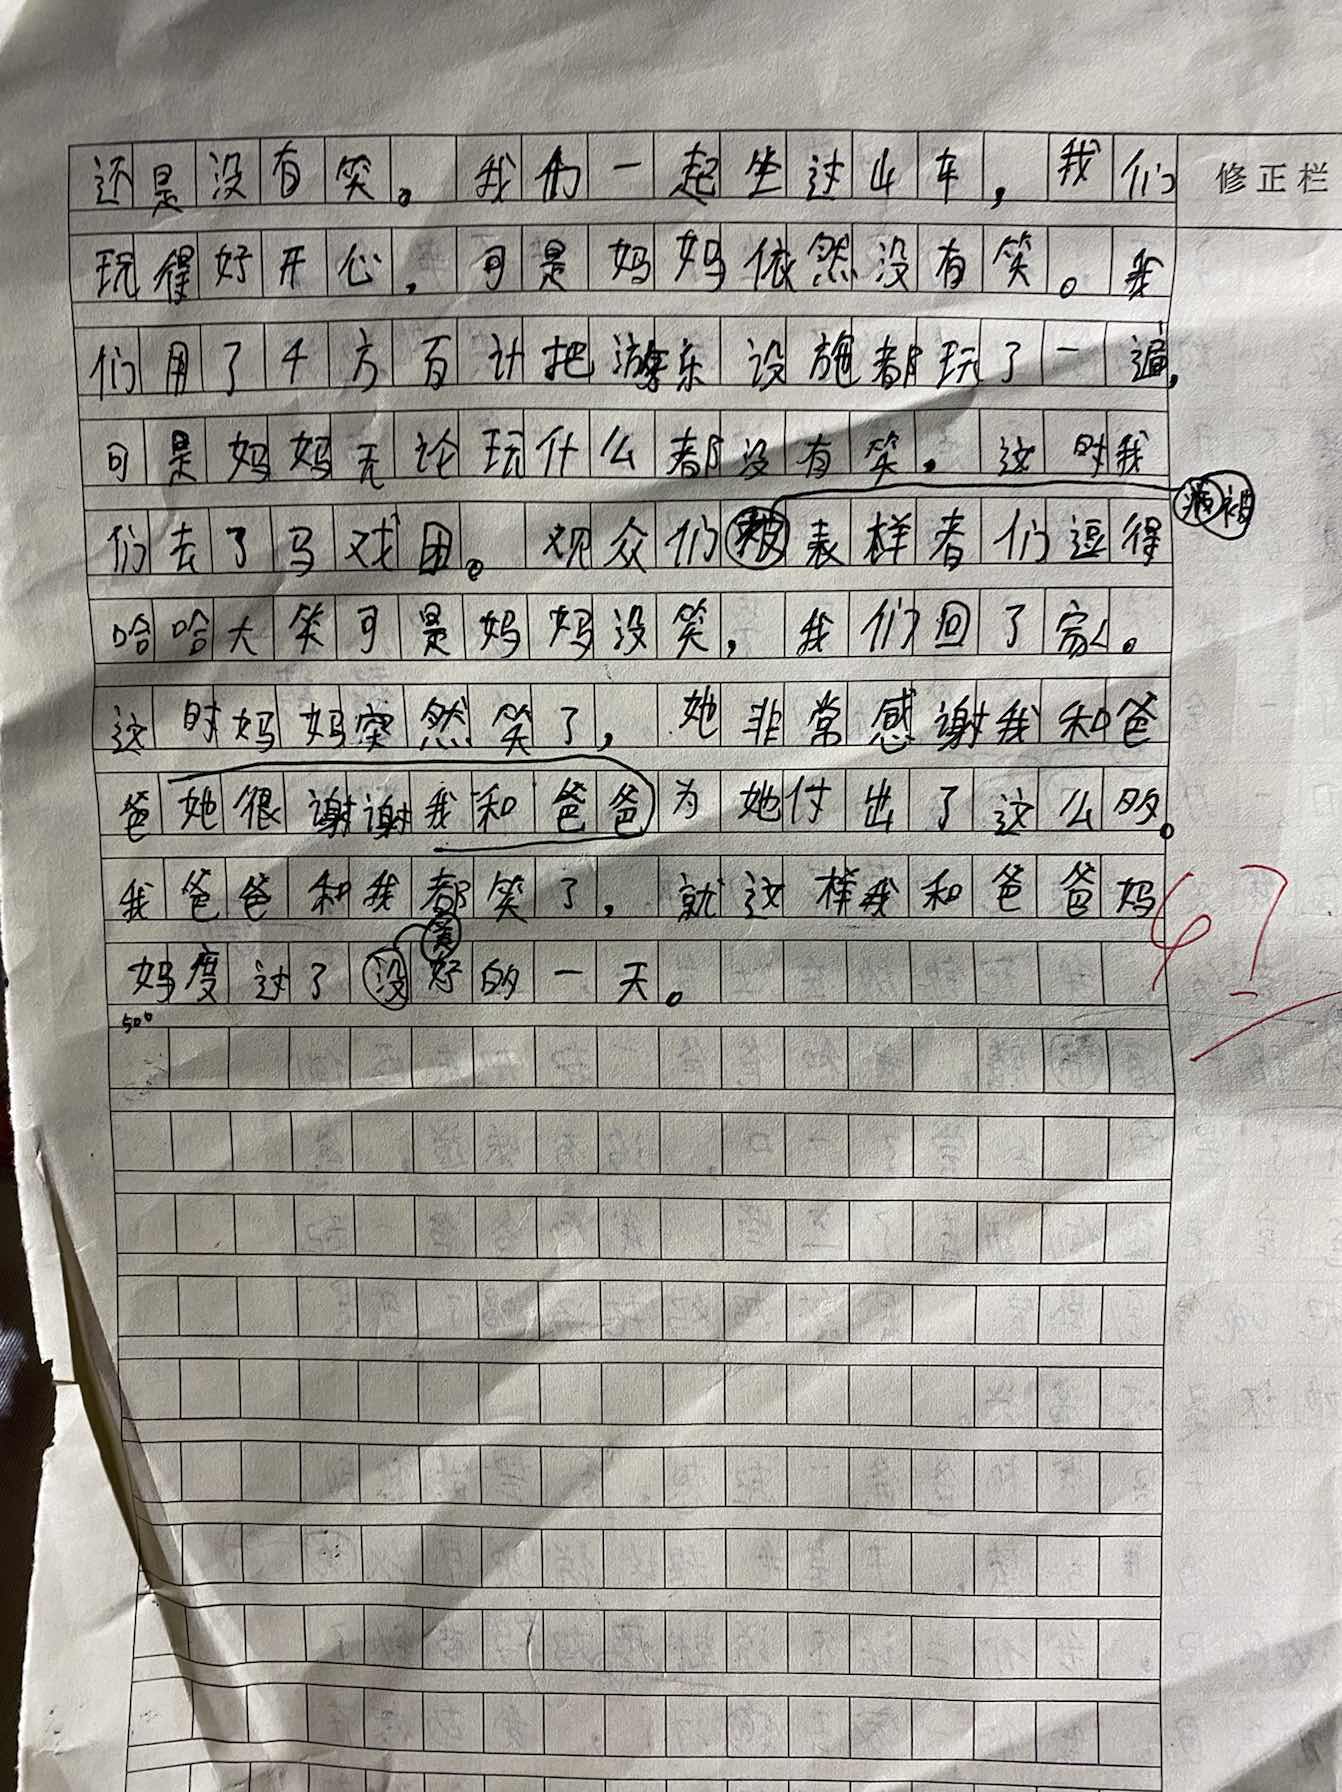 还是没有笑。我们一起坐过山车，我们
修正栏
玩得好开心，可是妈妈依然没有笑。我
们用了千方百计把游乐设施都玩了一遍，
可是妈妈无论玩什么都没有笑。这时我
们去了马戏团。观众们被表样者们逗得
哈哈大笑可是妈妈没笑，我们回了家。
这时妈妈突然笑了，她非常感谢我和爸
爸她很谢谢我和爸爸为她付出了这么多。
我爸爸和我都笑了，就这样我和爸爸妈
47
妈度过了没好的一天。
美
500